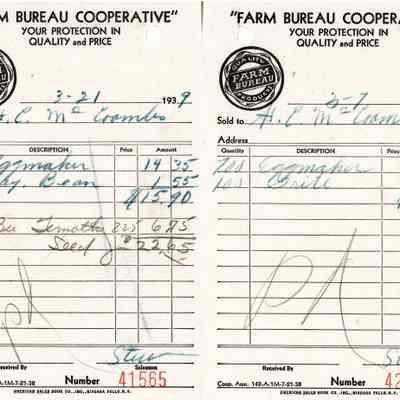 M BUREAU COOPERATIVE"
YOUR PROTECTION IN
QUALITY and PRICE
3-21 1939
H. C. McCoombs
DESCRIPTION Price Amount
Eggmaker 14 35
y. Bran 1 55
$15.90
Timothy 225 6 75
Seed 22,65
Received By Salesman
Stew
A-1M-7-21-38 Number 41565
AMERICAN SALES BOOK CO., INC., NIAGARA FALLS, N.Y.
"FARM BUREAU COOPERA
YOUR PROTECTION IN
QUALITY and PRICE
QUALITY
FARM
BUREAU
PRODUCTS
5-7
Sold to H. C McCoom
Address
Quantity DESCRIPTION Price
200 Eggmaker
100 Grit
Received By
Coop. Assn. 149-A-1M-7-21-38 Number 42
AMERICAN SALES BOOK CO., INC., NIAGARA FALLS, N.Y.